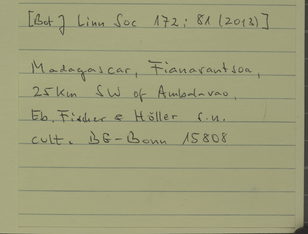 [Bot J Linn Soc 172: 81 (2013)]
Madagascar, Fianarantsoa,
25km SW of Ambalavao,
Eb. Fischer & Höller s.n.
cult. BG-Bonn 15808